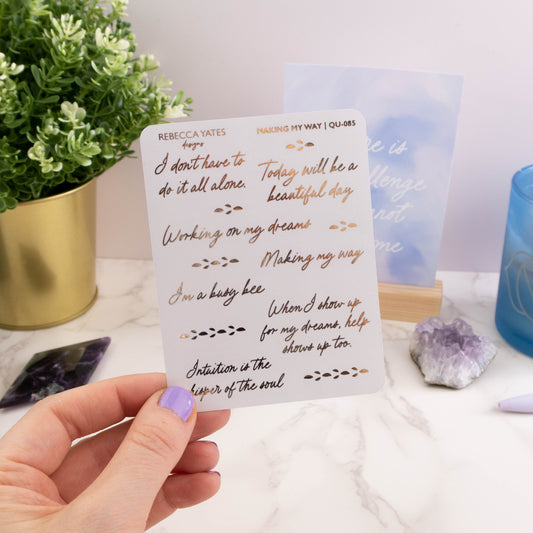 REBECCA YATES
designs
MAKING MY WAY | QU-085
I don't have to
do it all alone.
Today will be a
beautiful day
Working on my dreams
Making my way
I'm a busy bee
When I show up
for my dreams, help
shows up too.
Intuition is the
whisper of the soul
is